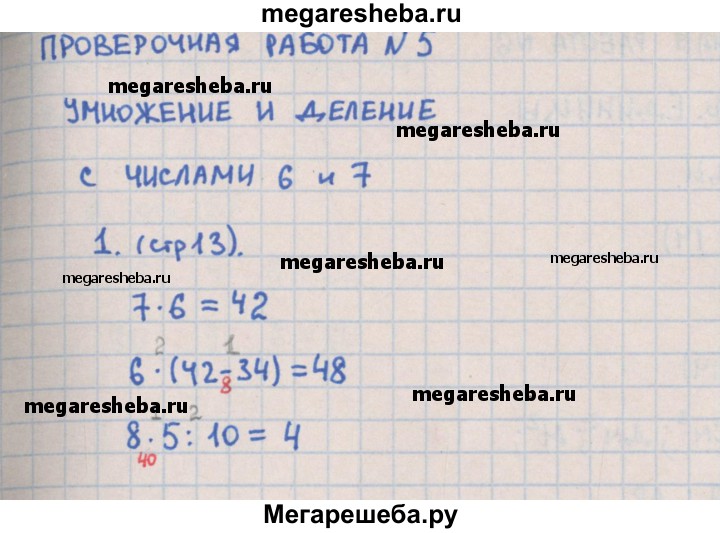 megaresheba.ru
ПРОВЕРОЧНАЯ РАБОТА N 5
megaresheba.ru
УМНОЖЕНИЕ И ДЕЛЕНИЕ
megaresheba.ru
С ЧИСЛАМИ 6 и 7
1. (стр 13).
megaresheba.ru
megaresheba.ru
megaresheba.ru
7·6 = 42
2 1
6·(42-34) = 48
8
megaresheba.ru
megaresheba.ru
1 2
8·5:10 = 4
40
Мегарешеба.ру